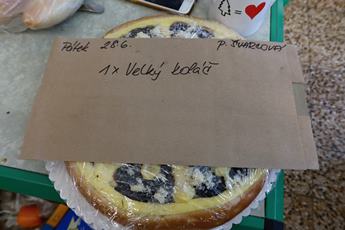 Pátek 28.6. p. Švarcovay
1x Velký koláč
=